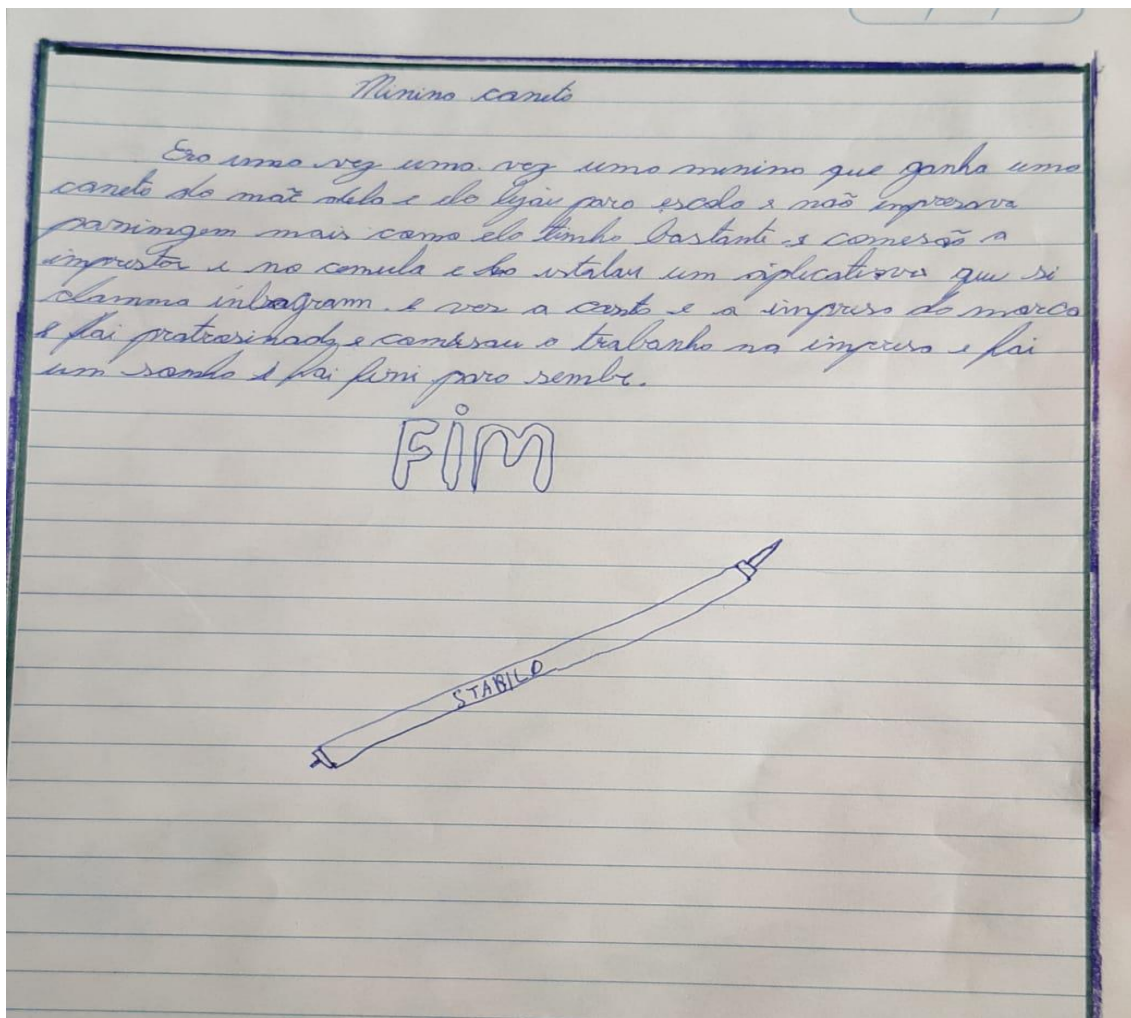 Minino caneta
Era uma vez uma vez uma menina que ganha uma
caneta da mãe dela e ela lejau para escola e não impresava
para ningem mais como ela tinha bastante e comesão a
imprestar e no comula e ela estalau um aplicativo que si
chamma intragram e ver a conta e a impresa da marca
e foi patrosinada e comesau o trabanho na impresa e foi
um sonho e foi feni para sembe.
FIM
STABILO